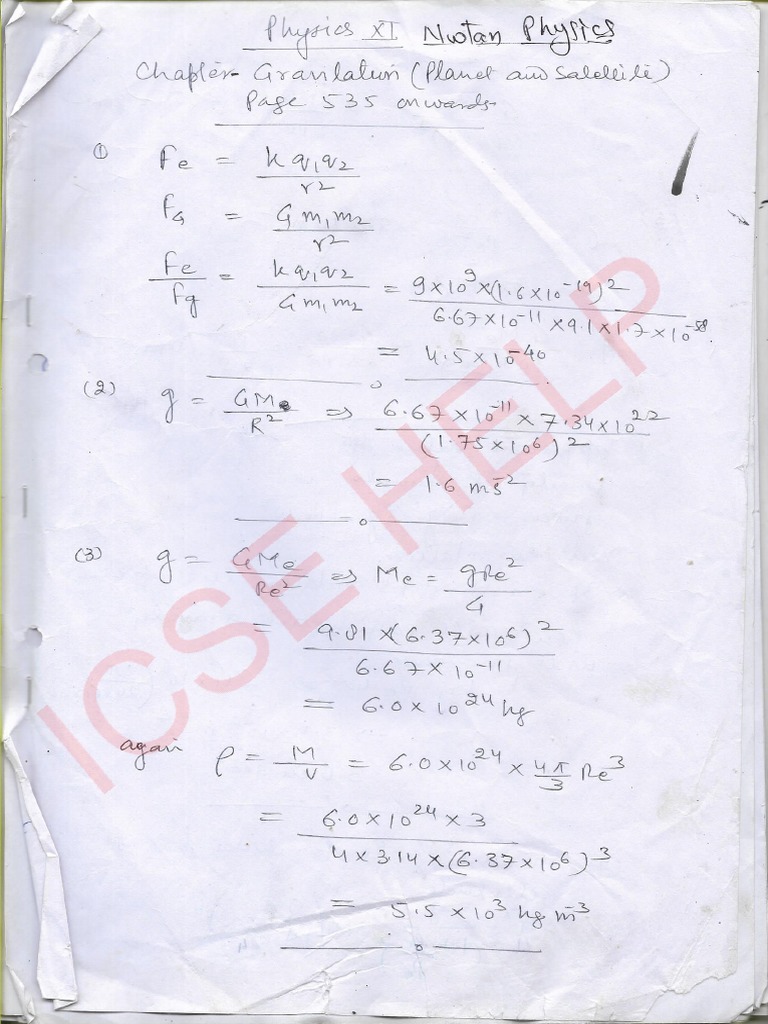 Physics XI Nootan Physics
Chapter- Gravitation (Planet and Satellite)
Page 535 onwards-
① Fe = k q₁q₂ / r²
F_G = G m₁m₂ / r²
Fe / Fg = k q₁q₂ / G m₁m₂ = 9×10⁹×(1.6×10⁻¹⁹)² / 6.67×10⁻¹¹×9.1×1.7×10⁻⁵⁸
= 4.5×10⁻⁴⁰
(2) g = GM / R² ⇒ 6.67×10⁻¹¹ × 7.34×10²² / (1.75×10⁶)²
= 1.6 ms⁻²
(3) g = GMe / Re² ⇒ Me = gRe² / G
= 9.81×(6.37×10⁶)² / 6.67×10⁻¹¹
= 6.0×10²⁴ kg
again ρ = M / V = 6.0×10²⁴ × 4π/3 Re³
= 6.0×10²⁴×3 / 4×3.14×(6.37×10⁶)³
= 5.5×10³ kg m⁻³
ICSE HELP